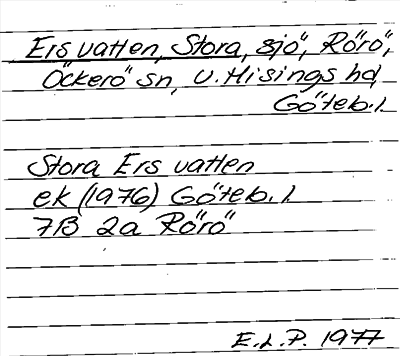 Ers vatten, Stora, sjö, Rörö,
Öckerö sn, V. Hisings hd,
Göteb. l.
Stora Ers vatten
ek (1976) Göteb. l.
7B 2a Rörö
E.L.P. 1977